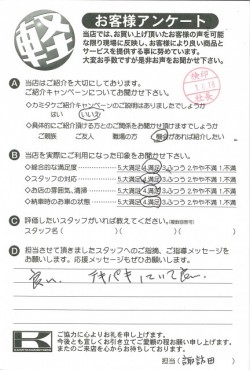 軽
お客様アンケート
当店では、お買い上げ頂いたお客様の声を可能
な限り現場に反映し、お客様により良い商品と
サービスを提供する事に努めています。
大変お手数ですが是非お声をお聞かせ下さい。
検印
A 当店はご紹介を大切にしております。
ご紹介キャンペーンについてお聞かせ下さい。
◇カミタケご紹介キャンペーンのご説明はありましたでしょうか
はい いいえ
◇具体的にご紹介頂ける方とのご関係をお聞かせ頂けますでしょうか
ご親族 ご友人 職場の方 機会があれば紹介したい
B 当店を実際にご利用になった印象をお聞かせ下さい。
◇総合的な満足度 5.大満足 4.満足 3.ふつう 2.やや不満 1.不満
◇スタッフの対応 5.大満足 4.満足 3.ふつう 2.やや不満 1.不満
◇お店の雰囲気、清掃 5.大満足 4.満足 3.ふつう 2.やや不満 1.不満
◇納車時のお車の状態 5.大満足 4.満足 3.ふつう 2.やや不満 1.不満
C 評価したいスタッフがいれば教えてください。(複数回答可)
スタッフ名( )( )( )
D 担当させて頂きましたスタッフへのご指摘、ご指導メッセージを
お願いします。応援メッセージもぜひお願いします。
良い テキパキしていて良い
K
ご協力に心よりお礼を申し上げます。
今後とも宜しくお引き立てご愛顧の程お願い申し上げます。
またのご来店を心からお待ちしております。
担当(諏訪田)